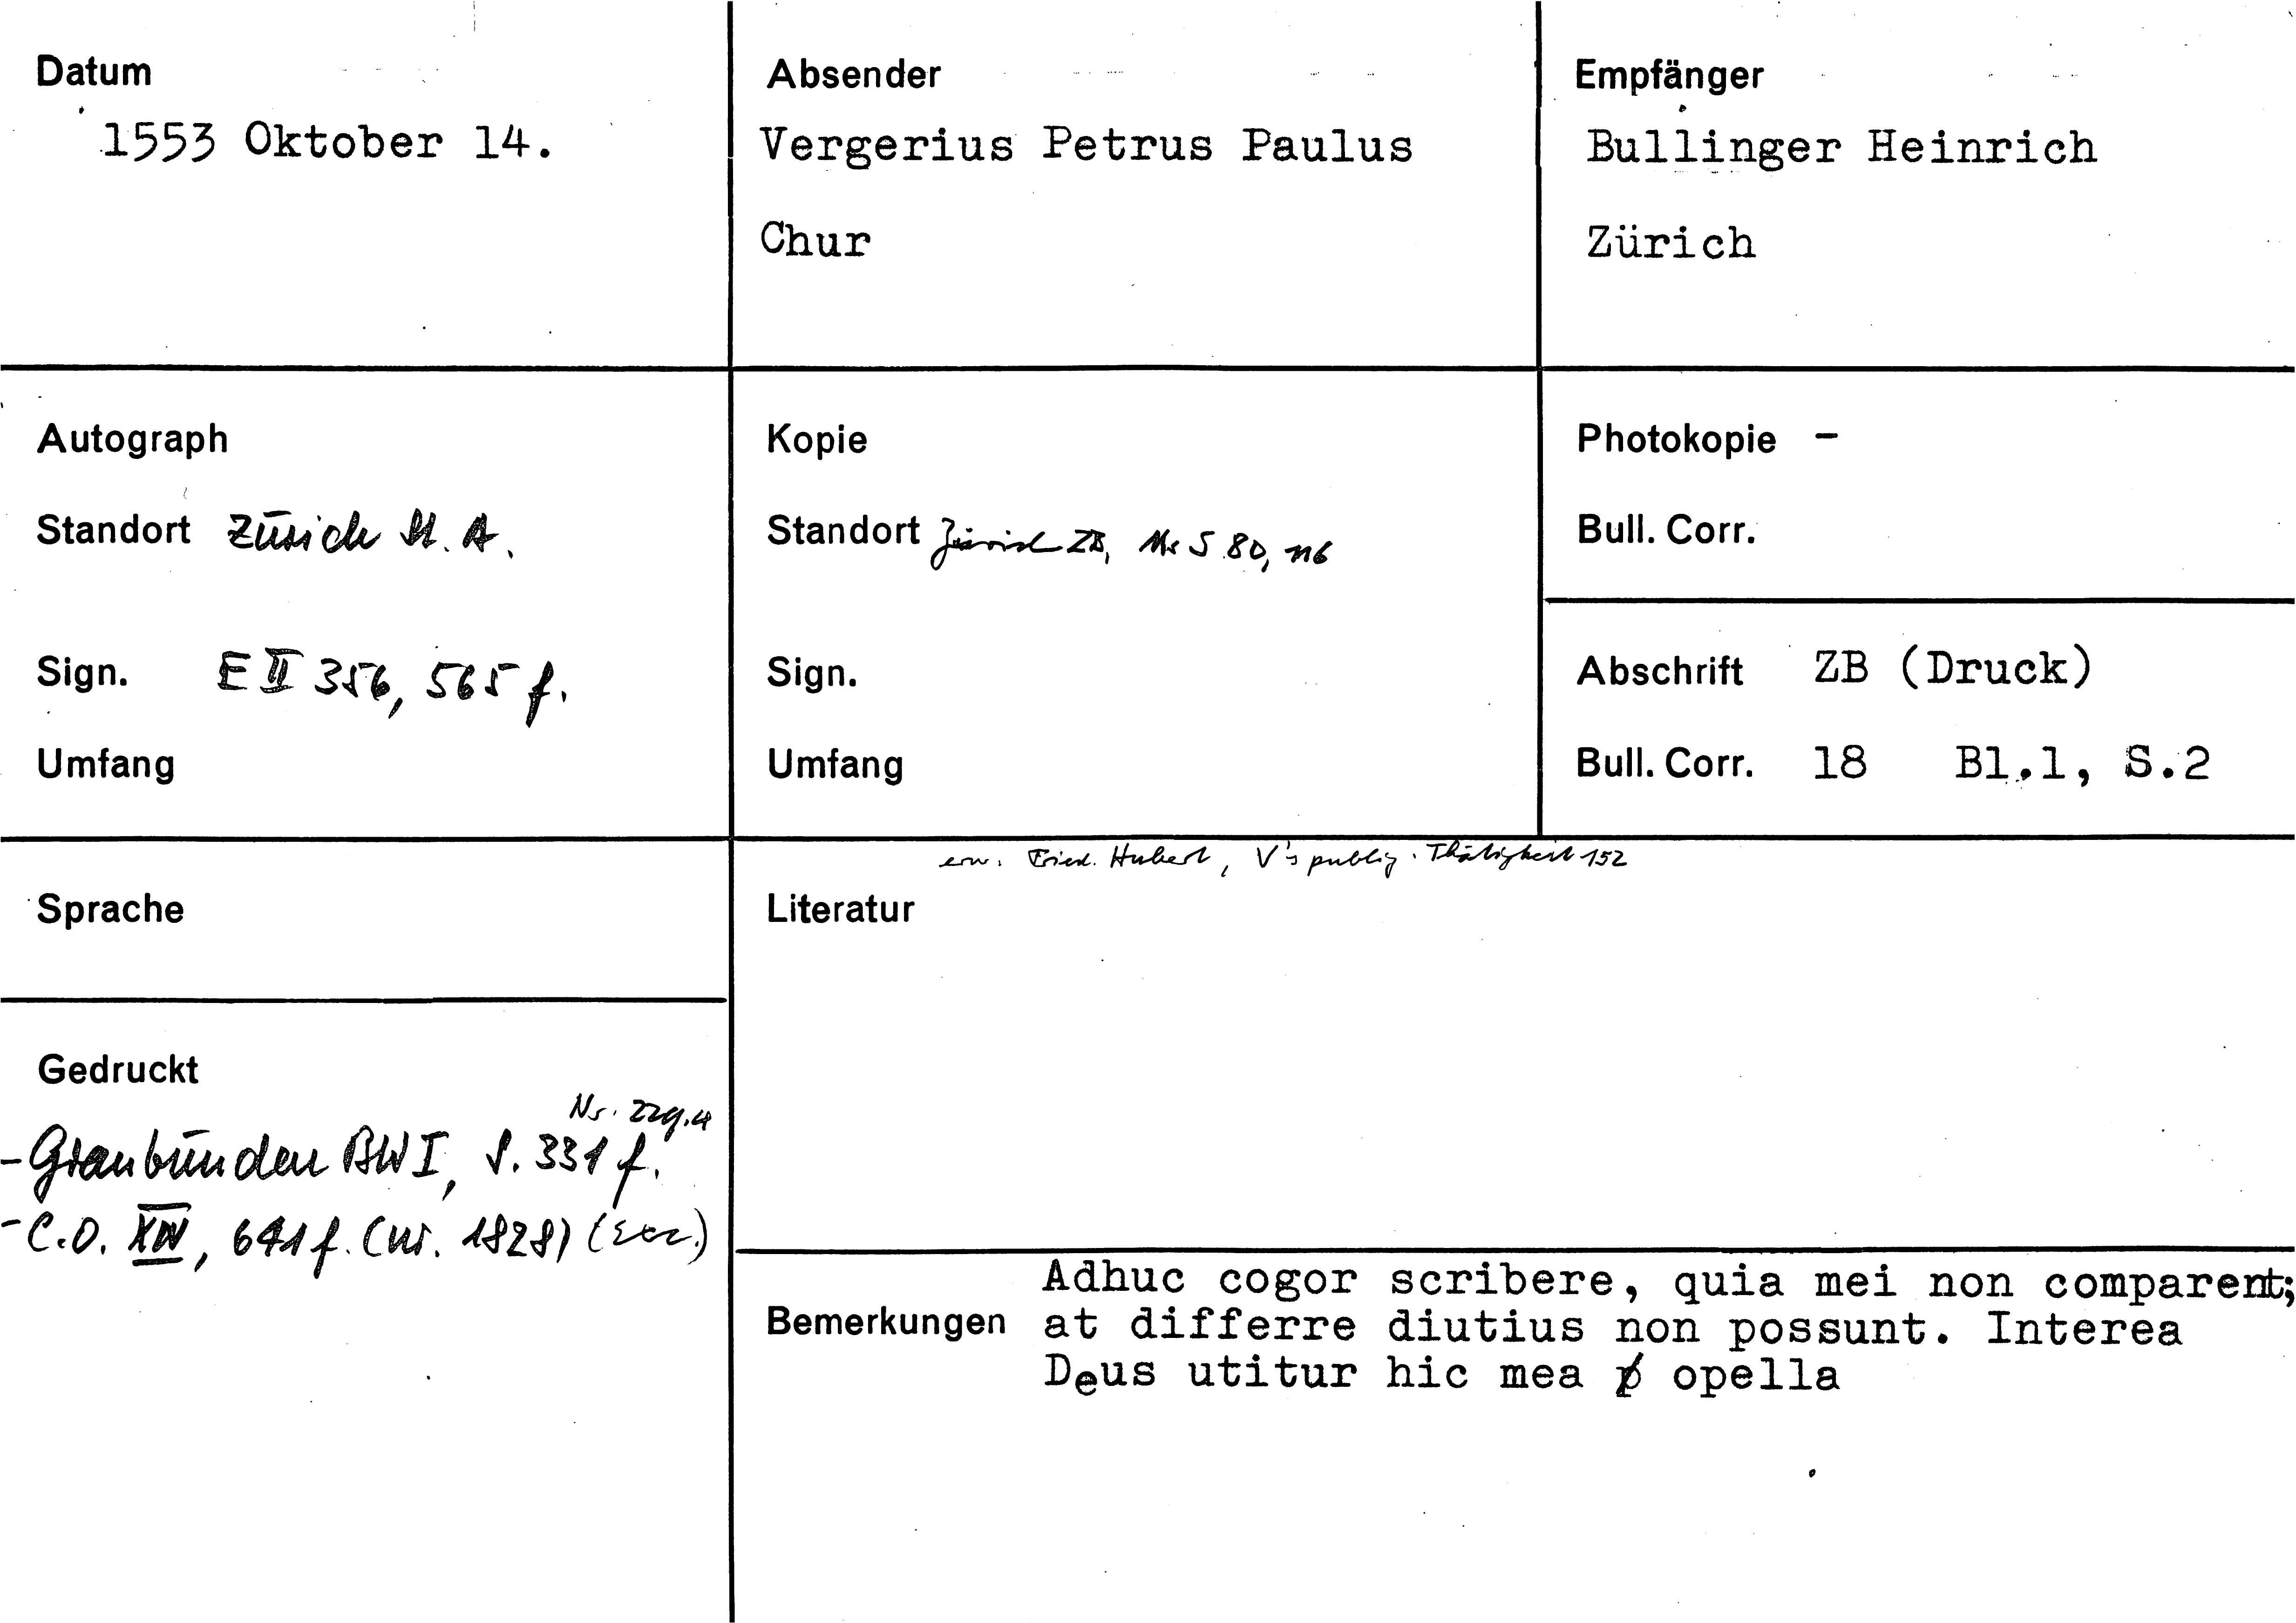 Datum
1553 Oktober 14.
Absender
Vergerius Petrus Paulus
Chur
Empfänger
Bullinger Heinrich
Zürich
Autograph
Standort Zürich St. A.
Sign. E II 356, 565 f.
Umfang
Kopie
Standort Zürich ZB, Ms S 80, 116
Sign.
Umfang
Photokopie -
Bull. Corr.
Abschrift ZB (Druck)
Bull. Corr. 18 Bl.1, S.2
Sprache
erw. Fried. Hubert, V's publiz. Thätigkeit 152
Literatur
Gedruckt
Nr. 229.4
- Graubünden BW I, S. 331 f.
- C.O. XIV, 641 f. (nr. 1828)
Bemerkungen
Adhuc cogor scribere, quia mei non comparent;
at differre diutius non possunt. Interea
Deus utitur hic mea opella